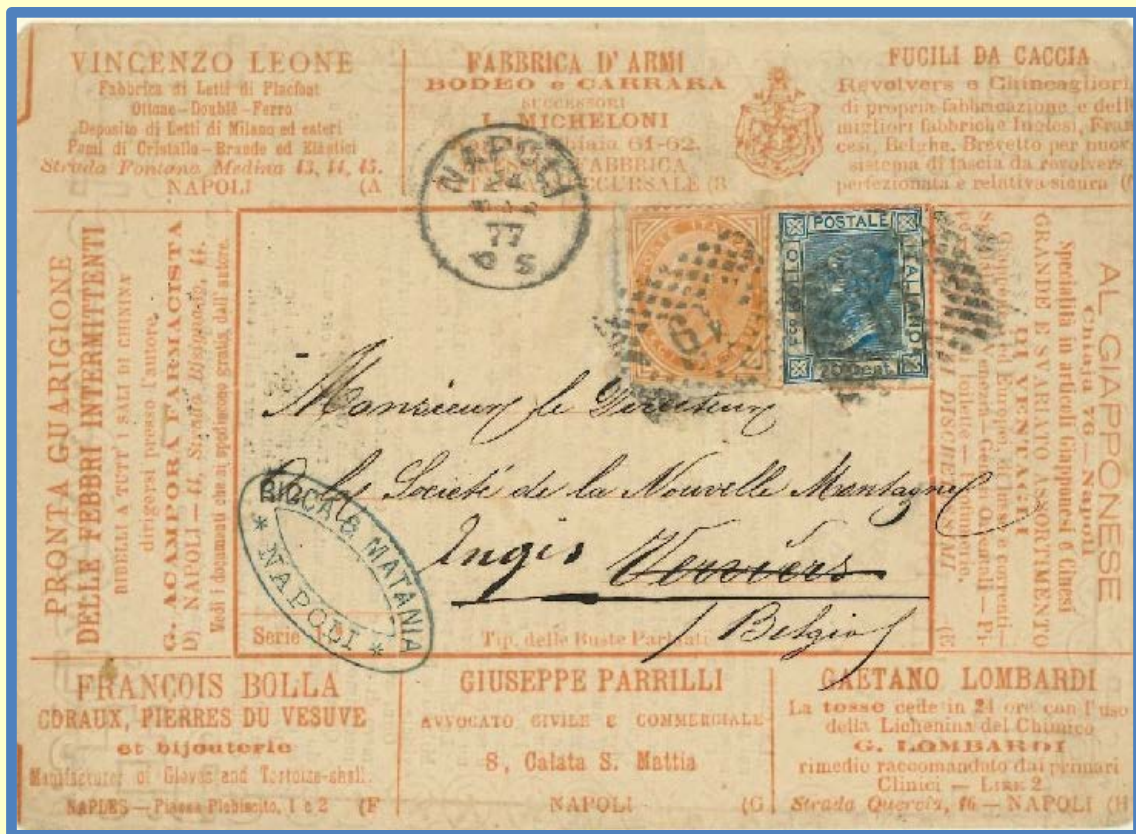 VINCENZO LEONE
Fabbrica di Letti di Placfont
Ottone-Doublè-Ferro
Deposito di Letti di Milano ed esteri
Pomi di Cristallo-Brande ed Elastici
Strada Fontana Medina 43, 44, 45.
NAPOLI (A
FABBRICA D'ARMI
BODEO e CARRARA
SUCCESSORI
L. MICHELONI
61-62.
FABBRICA
SUCCURSALE (B
FUCILI DA CACCIA
Revolvers e Chincaglieri
di propria fabbricazione e dell
migliori fabbriche Inglesi, Fran
cesi, Belghe. Brevetto per nuov
sistema di fascia da revolvers
perfezionata e relativa sicura (
NAPOLI
24
77
6 S
POSTALE
ITALIANO
Fco BOLLO
20 Cent
19
PRONTA GUARIGIONE
DELLE FEBBRI INTERMITTENTI
RIBELLI A TUTT' I SALI DI CHININA
dirigersi presso l'autore
G. ACAMPORA FARMACISTA
D) NAPOLI-44, Strada 44.
Vedi i documenti che si spediscono gratis dall'autore.
AL GIAPPONESE
Chiaia 76-Napoli
Specialità in articoli Giapponesi e Chinesi
GRANDE E SVARIATO ASSORTIMENTO
DI VENTAGLI
Monsieur le Directeur
de la Societé de la Nouvelle Montagne
Engis Verviers
Belgio
RICCA & MATANIA
* NAPOLI *
Serie
Tip. delle Buste Parlanti
FRANÇOIS BOLLA
CORAUX, PIERRES DU VESUVE
et bijouterie
Manufacturer of Gloves and Tortoise-shell.
NAPLES-Piazza Plebiscito, 1 e 2 (F
GIUSEPPE PARRILLI
AVVOCATO CIVILE E COMMERCIALE
8, Calata S. Mattia
NAPOLI (G
GAETANO LOMBARDI
La tosse cede in 24 ore con l'uso
della Lichenina del Chimico
G. LOMBARDI
rimedio raccomandato dai primari
Clinici — LIRE 2
Strada Quercia, 16-NAPOLI (H